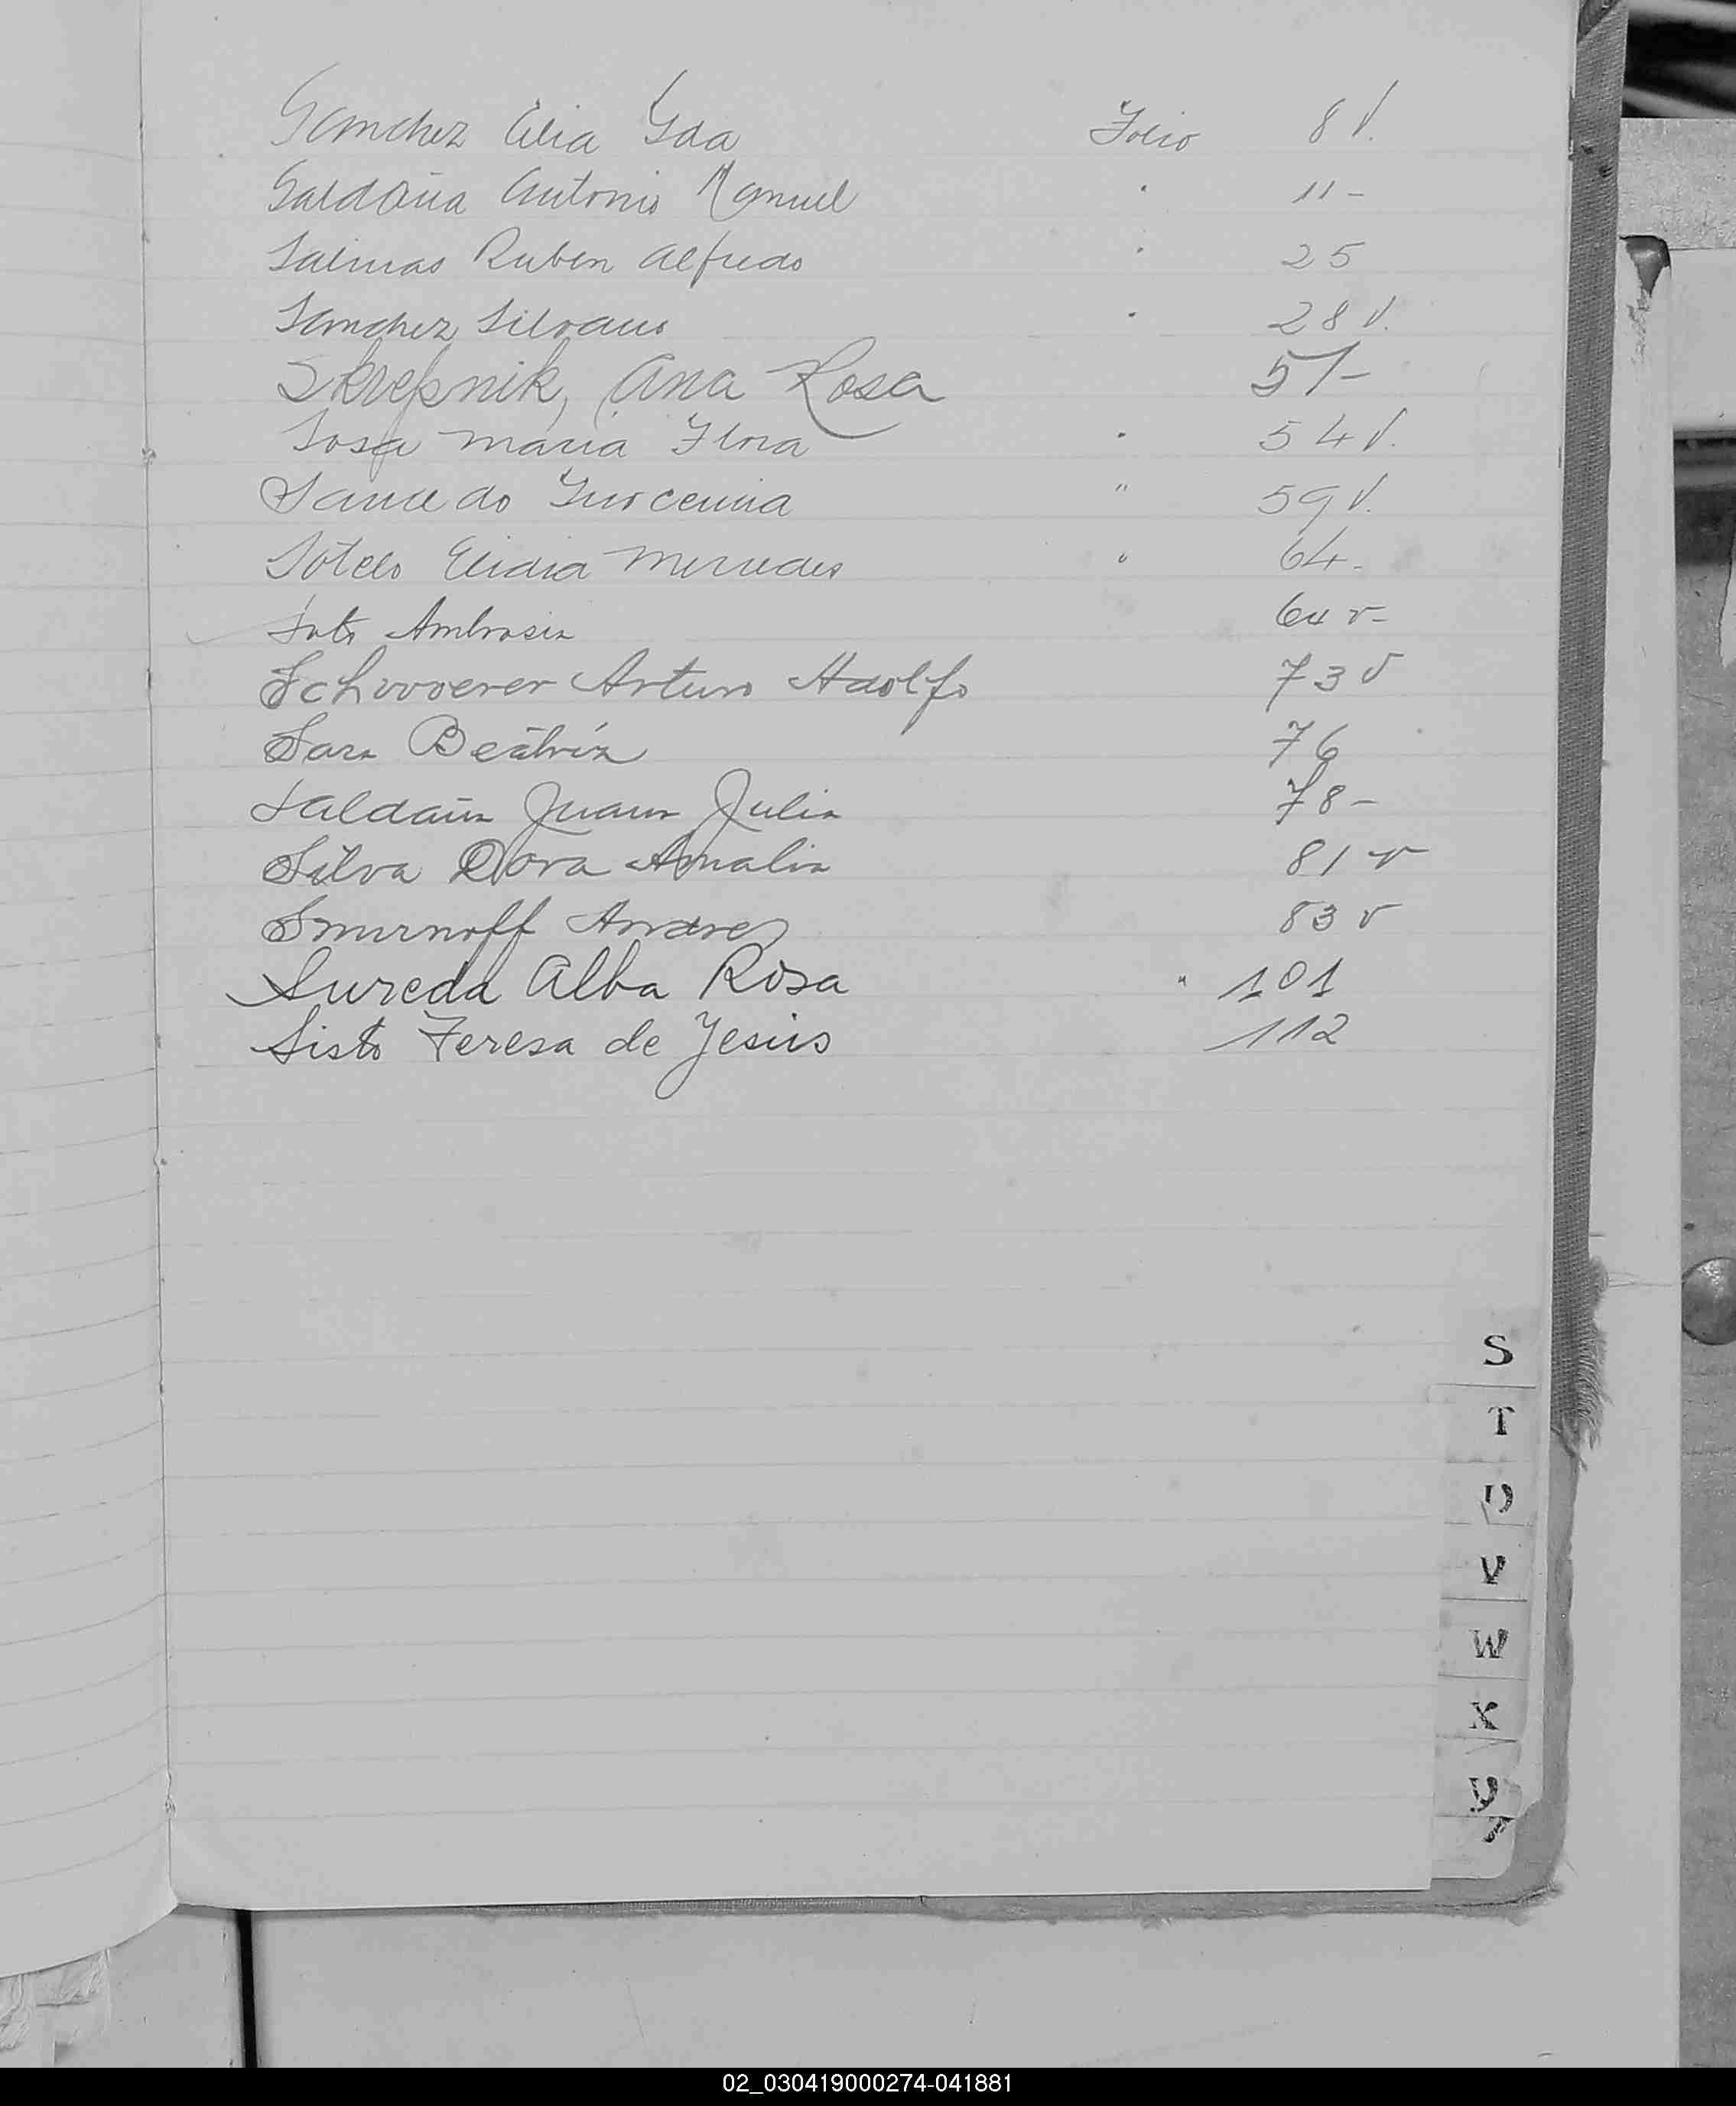 Sanchez Elia Yda Folio 8 V.
Saldaña Antonio Manuel " 11 -
Salinas Ruben Alfredo " 25
Sanchez Silvano " 28 V.
Skrepnik, Ana Rosa 51-
Sosa Maria Flora " 54 V.
Saucedo " 59 V.
Sotelo Elidia Mercedes " 64 -
Soto Ambrosia 64 v -
Arturo Adolfo 73 v
Sara Beatriz 76
Saldaña Juana Julia 78 -
Silva Dora Amalia 81 v
Smirnoff Andres 83 v
Sureda Alba Rosa " 101
Sisto Teresa de Jesús 112
S
T
U
V
W
X
Y
02_030419000274-041881